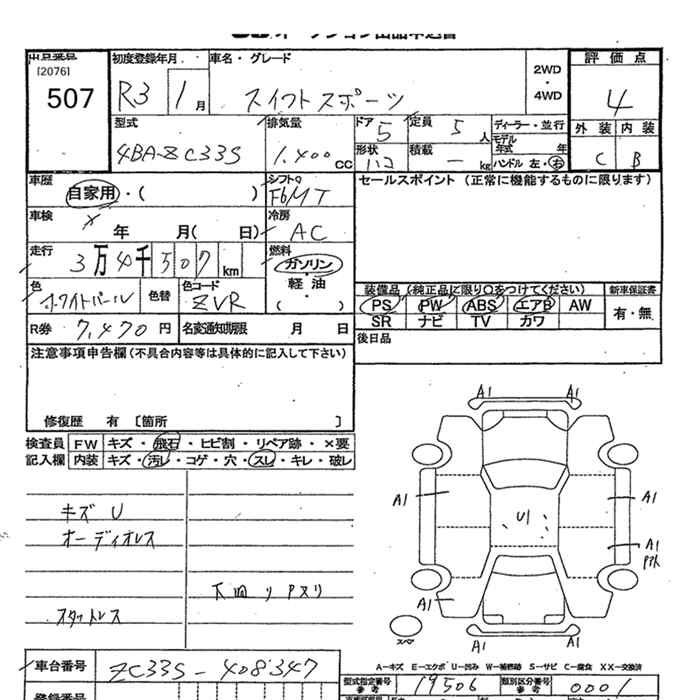 オークション出品申込書
出品番号
[2076]
507
初度登録年月
R3 1月
車名・グレード
スイフトスポーツ
2WD
・
4WD
評価点
4
型式
4BA-ZC33S
排気量
1,400 CC
ドア
5
定員
5人
ディーラー・並行
モデル年式 年
形状
ハコ
積載
ー kg
ハンドル 左・右
外装 内装
C B
車歴
自家用・( )
シフト
F6MT
セールスポイント (正常に機能するものに限ります)
車検
× 年 月( 日)
冷房
AC
走行
3万4千507km
燃料
ガソリン
・
軽油
・
( )
色
ホワイトパール
色替
色コード
ZVR
装備品 (純正品に限り○をつけてください)
新車保証書
PS PW ABS エアB AW
SR ナビ TV カワ
有・無
R券 7,470円
名変通知期限 月 日
後日品
注意事項申告欄 (不具合内容等は具体的に記入して下さい)
修復歴 有 〔箇所 〕
検査員記入欄
FW キズ・飛石・ヒビ割・リペア跡・×要
内装 キズ・汚レ・コゲ・穴・スレ・キレ・破レ
キズ U
オーディオレス
下回りﾊﾟｽﾘ
スタットレス
A1 A1
A1 U1 A1
A1
A1
A1 A1
スペア
A―キズ E―エクボ U―凹み W―補修跡 S―サビ C―腐食 XX―交換済
車台番号
ZC33S-408347
型式指定番号
参考
19506
類別区分番号
参考
0001
登録番号